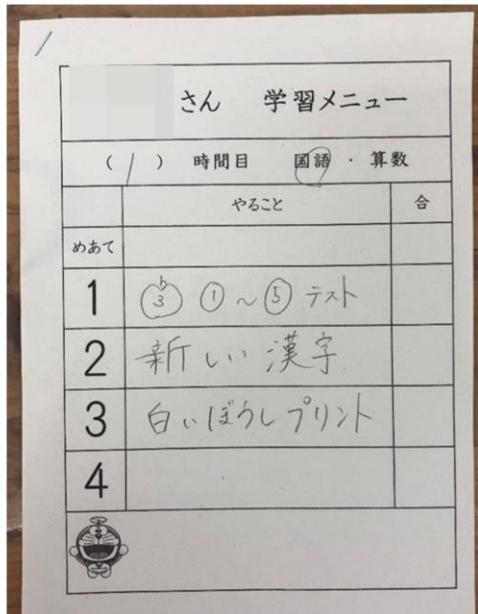 /
さん 学習メニュー
( 1 ) 時間目 国語 ・ 算数
やること 合
めあて
1 ③ ① ~ ⑤ テスト
2 新しい漢字
3 白いぼうしプリント
4